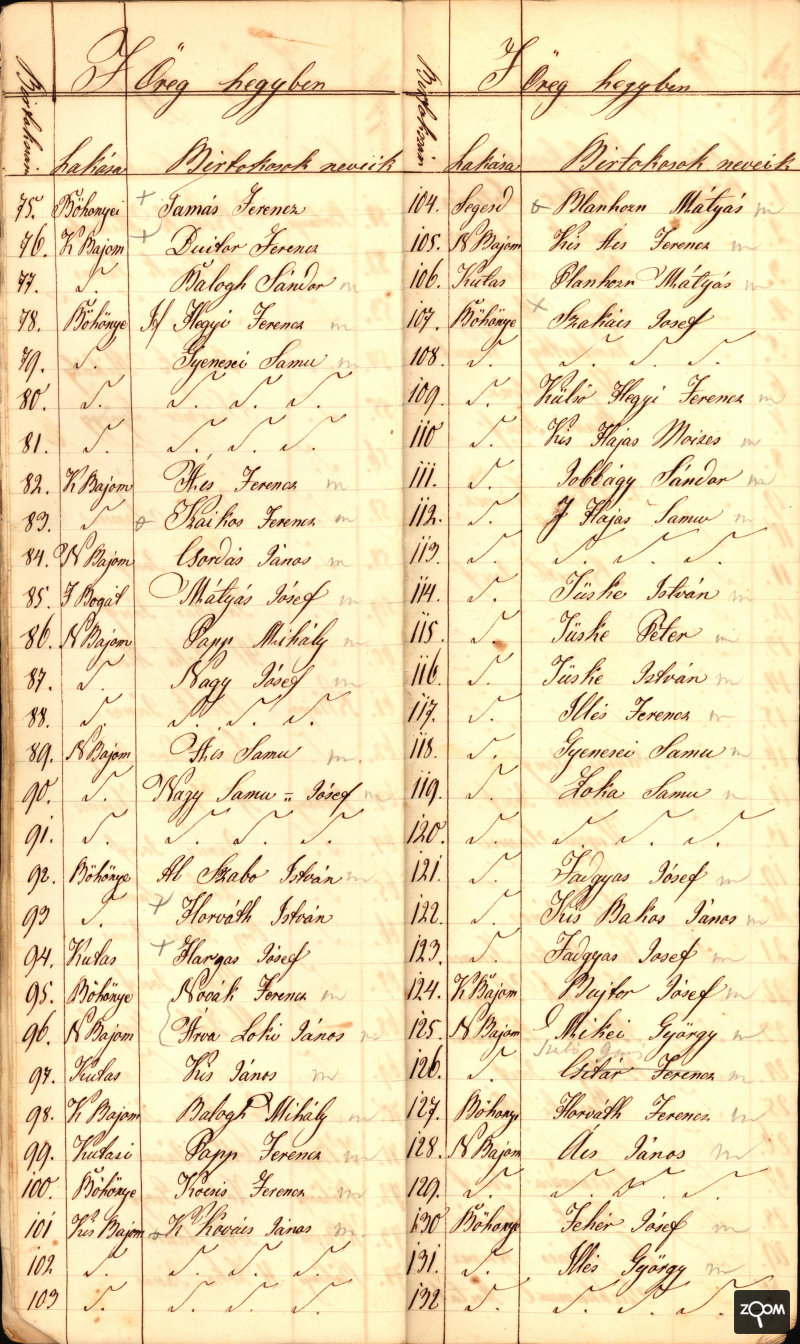 Öreg hegyben
Birtokszám Lakása Birtokosok neveik
75. Böhönyei + Tamás Ferencz
76. K Bajom + Duitor Ferencz
77. S. Balogh Sándor m
78. Böhönye If Hegyi Ferencz m
79. S. Gyenesei Samu m
80. S. S. S. S. S.
81. S. S. S. S. S.
82. K Bajom Ács Ferencz m
83. S. Szaikos Ferencz m
84. N Bajom Csordás János m
85. Bogát Mátyás Jósef m
86. N Bajom Papp Mihály m
87. S. Nagy Jósef m
88. S. S. S. S. S.
89. N Bajom Ács Samu m
90. S. Nagy Samu „ Jósef m
91. S. S. S. S. S.
92. Böhönye Al Szabo István m
93 S. + Horváth István
94. Kutas + Hargas Jósef
95. Böhönye Novák Ferencz m
96. N Bajom Árva Loki János m
97. Kutas Kis János m
98. K Bajom Balogh Mihály m
99. Kutasi Papp Ferencz m
100. Böhönye Kocsis Ferencz m
101 Kis Bajom K Kovács János m
102 S. S. S. S. S.
103 S. S. S. S. S.
Öreg hegyben
Birtokszám Lakása Birtokosok neveik
104. Segesd Blanhorn Mátyás m
105. N Bajom Kis Ács Ferencz m
106. Kutas Planhorn Mátyás m
107. Böhönye + Szakács Josef
108. S. S. S. S. S.
109. S. Külső Hegyi Ferencz m
110 S. Kis Hajas Moizes m
111. S. Jobbágy Sándor m
112. S. J Hajas Samu m
113. S. S. S. S. S.
114. S. Tüske István m
115 S. Tüske Péter m
116 S. Tüske István m
117. S. Illés Ferencz m
118. S. Gyenesei Samu m
119 S. Zoka Samu m
120. S. S. S. S. S.
121. S. Fadgyas Jósef m
122. S. Kis Bakos János m
123. S. Fadgyas Josef m
124. K Bajom Bujtor Jósef m
125. N Bajom Mikei György m
126. S. Csitár Ferencz m
127. Böhonye Horváth Ferencz m
128. N Bajom Ács János m
129. S. S. S. S. S.
130 Böhonye Fehér Jósef m
131. S. Illés György m
132 S. S. S. S. S.
ZOOM